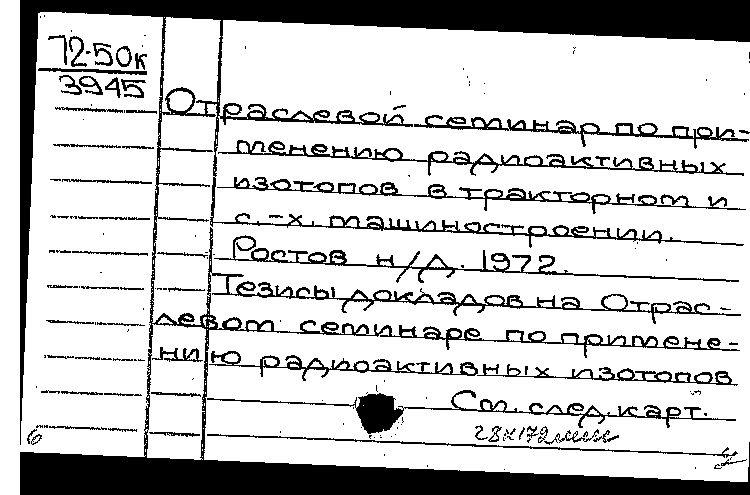 72-50к
3945
Отраслевой семинар по при-
менению радиоактивных
изотопов в тракторном и
с.-х. машиностроении.
Ростов н/Д. 1972.
Тезисы докладов на Отрас-
левом семинаре по примене-
нию радиоактивных изотопов
См. след. карт.
6